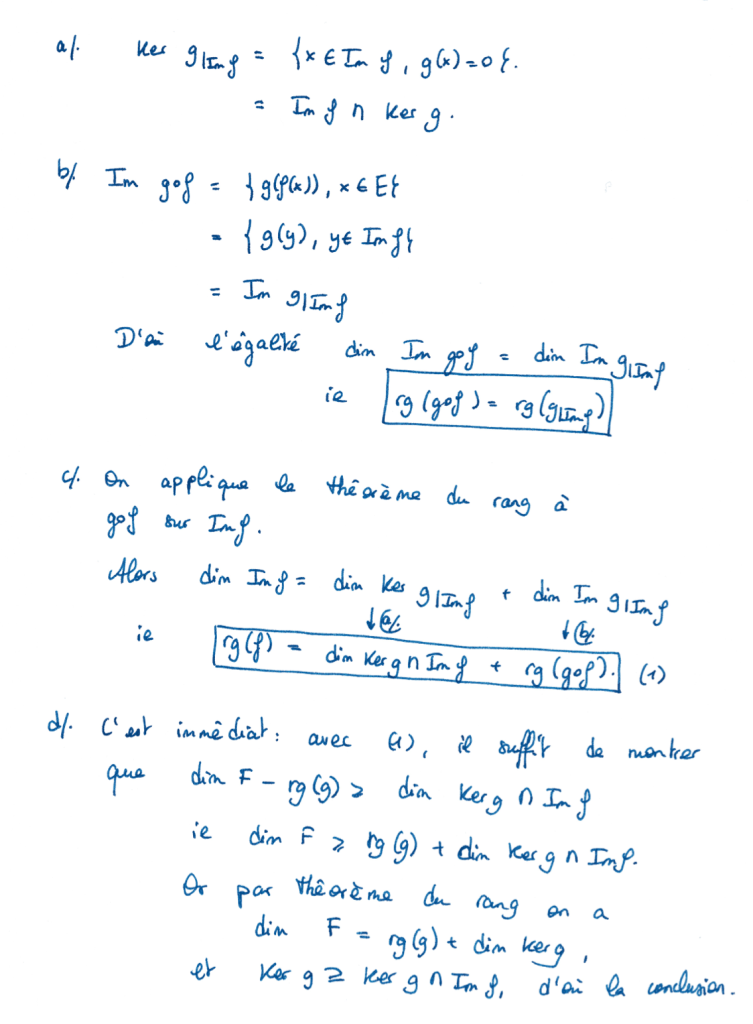 a/. Ker g|Im f = {x ∈ Im f, g(x)=0}.
= Im f ∩ Ker g.
b/. Im g∘f = {g(f(x)), x ∈ E}
= {g(y), y ∈ Im f}
= Im g|Im f
D'où l'égalité dim Im g∘f = dim Im g|Im f
ie rg(g∘f) = rg(g|Im f)
c/. On applique le théorème du rang à
g∘f sur Im f.
Alors dim Im f = dim Ker g|Im f + dim Im g|Im f
↓ a/. ↓ b/.
ie rg(f) = dim Ker g ∩ Im f + rg(g∘f). (1)
d/. C'est immédiat : avec (1), il suffit de montrer
que dim F - rg(g) ≥ dim Ker g ∩ Im f
ie dim F ≥ rg(g) + dim Ker g ∩ Im f.
Or par théorème du rang on a
dim F = rg(g) + dim Ker g,
et Ker g ⊇ Ker g ∩ Im f, d'où la conclusion.